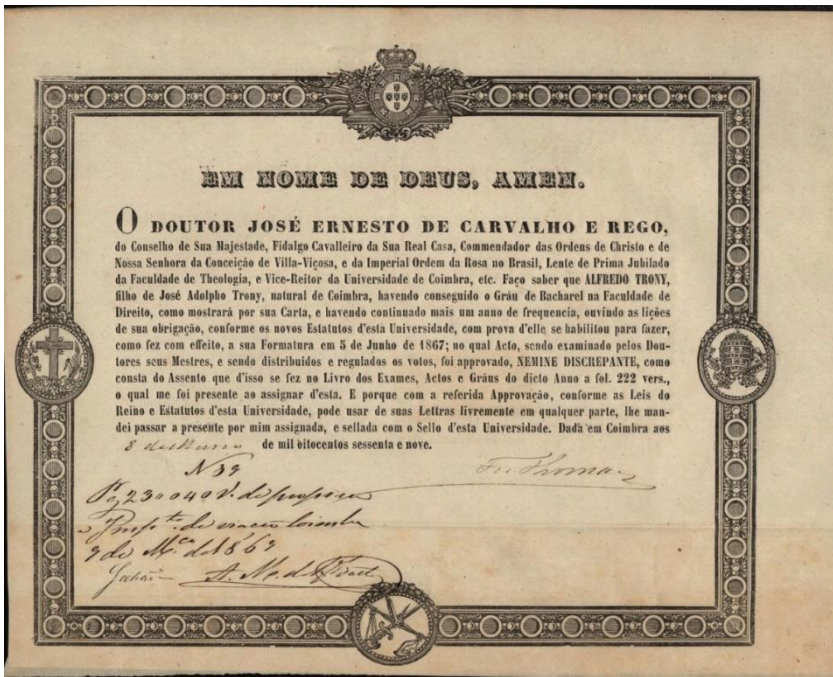 EM NOME DE DEUS, AMEN.
O DOUTOR JOSÉ ERNESTO DE CARVALHO E REGO,
do Conselho de Sua Majestade, Fidalgo Cavalleiro da Sua Real Casa, Commendador das Ordens de Christo e de
Nossa Senhora da Conceição de Villa-Viçosa, e da Imperial Ordem da Rosa no Brasil, Lente de Prima Jubilado
da Faculdade de Theologia, e Vice-Reitor da Universidade de Coimbra, etc. Faço saber que ALFREDO TRONY,
filho de José Adolpho Trony, natural de Coimbra, havendo conseguido o Gráu de Bacharel na Faculdade de
Direito, como mostrará por sua Carta, e havendo continuado mais um anno de frequencia, ouvindo as lições
de sua obrigação, conforme os novos Estatutos d'esta Universidade, com prova d'elle se habilitou para fazer,
como fez com effeito, a sua Formatura em 5 de Junho de 1867; no qual Acto, sendo examinado pelos Dou-
tores seus Mestres, e sendo distribuidos e regulados os votos, foi approvado, NEMINE DISCREPANTE, como
consta do Assento que d'isso se fez no Livro dos Exames, Actos e Gráus do dicto Anno a fol. 222 vers.,
o qual me foi presente ao assignar d'esta. E porque com a referida Approvação, conforme as Leis do
Reino e Estatutos d'esta Universidade, pode usar de suas Lettras livremente em qualquer parte, lhe man-
dei passar a presente por mim assignada, e sellada com o Sello d'esta Universidade. Dada em Coimbra aos
8 de de mil oitocentos sessenta e nove.
N 39